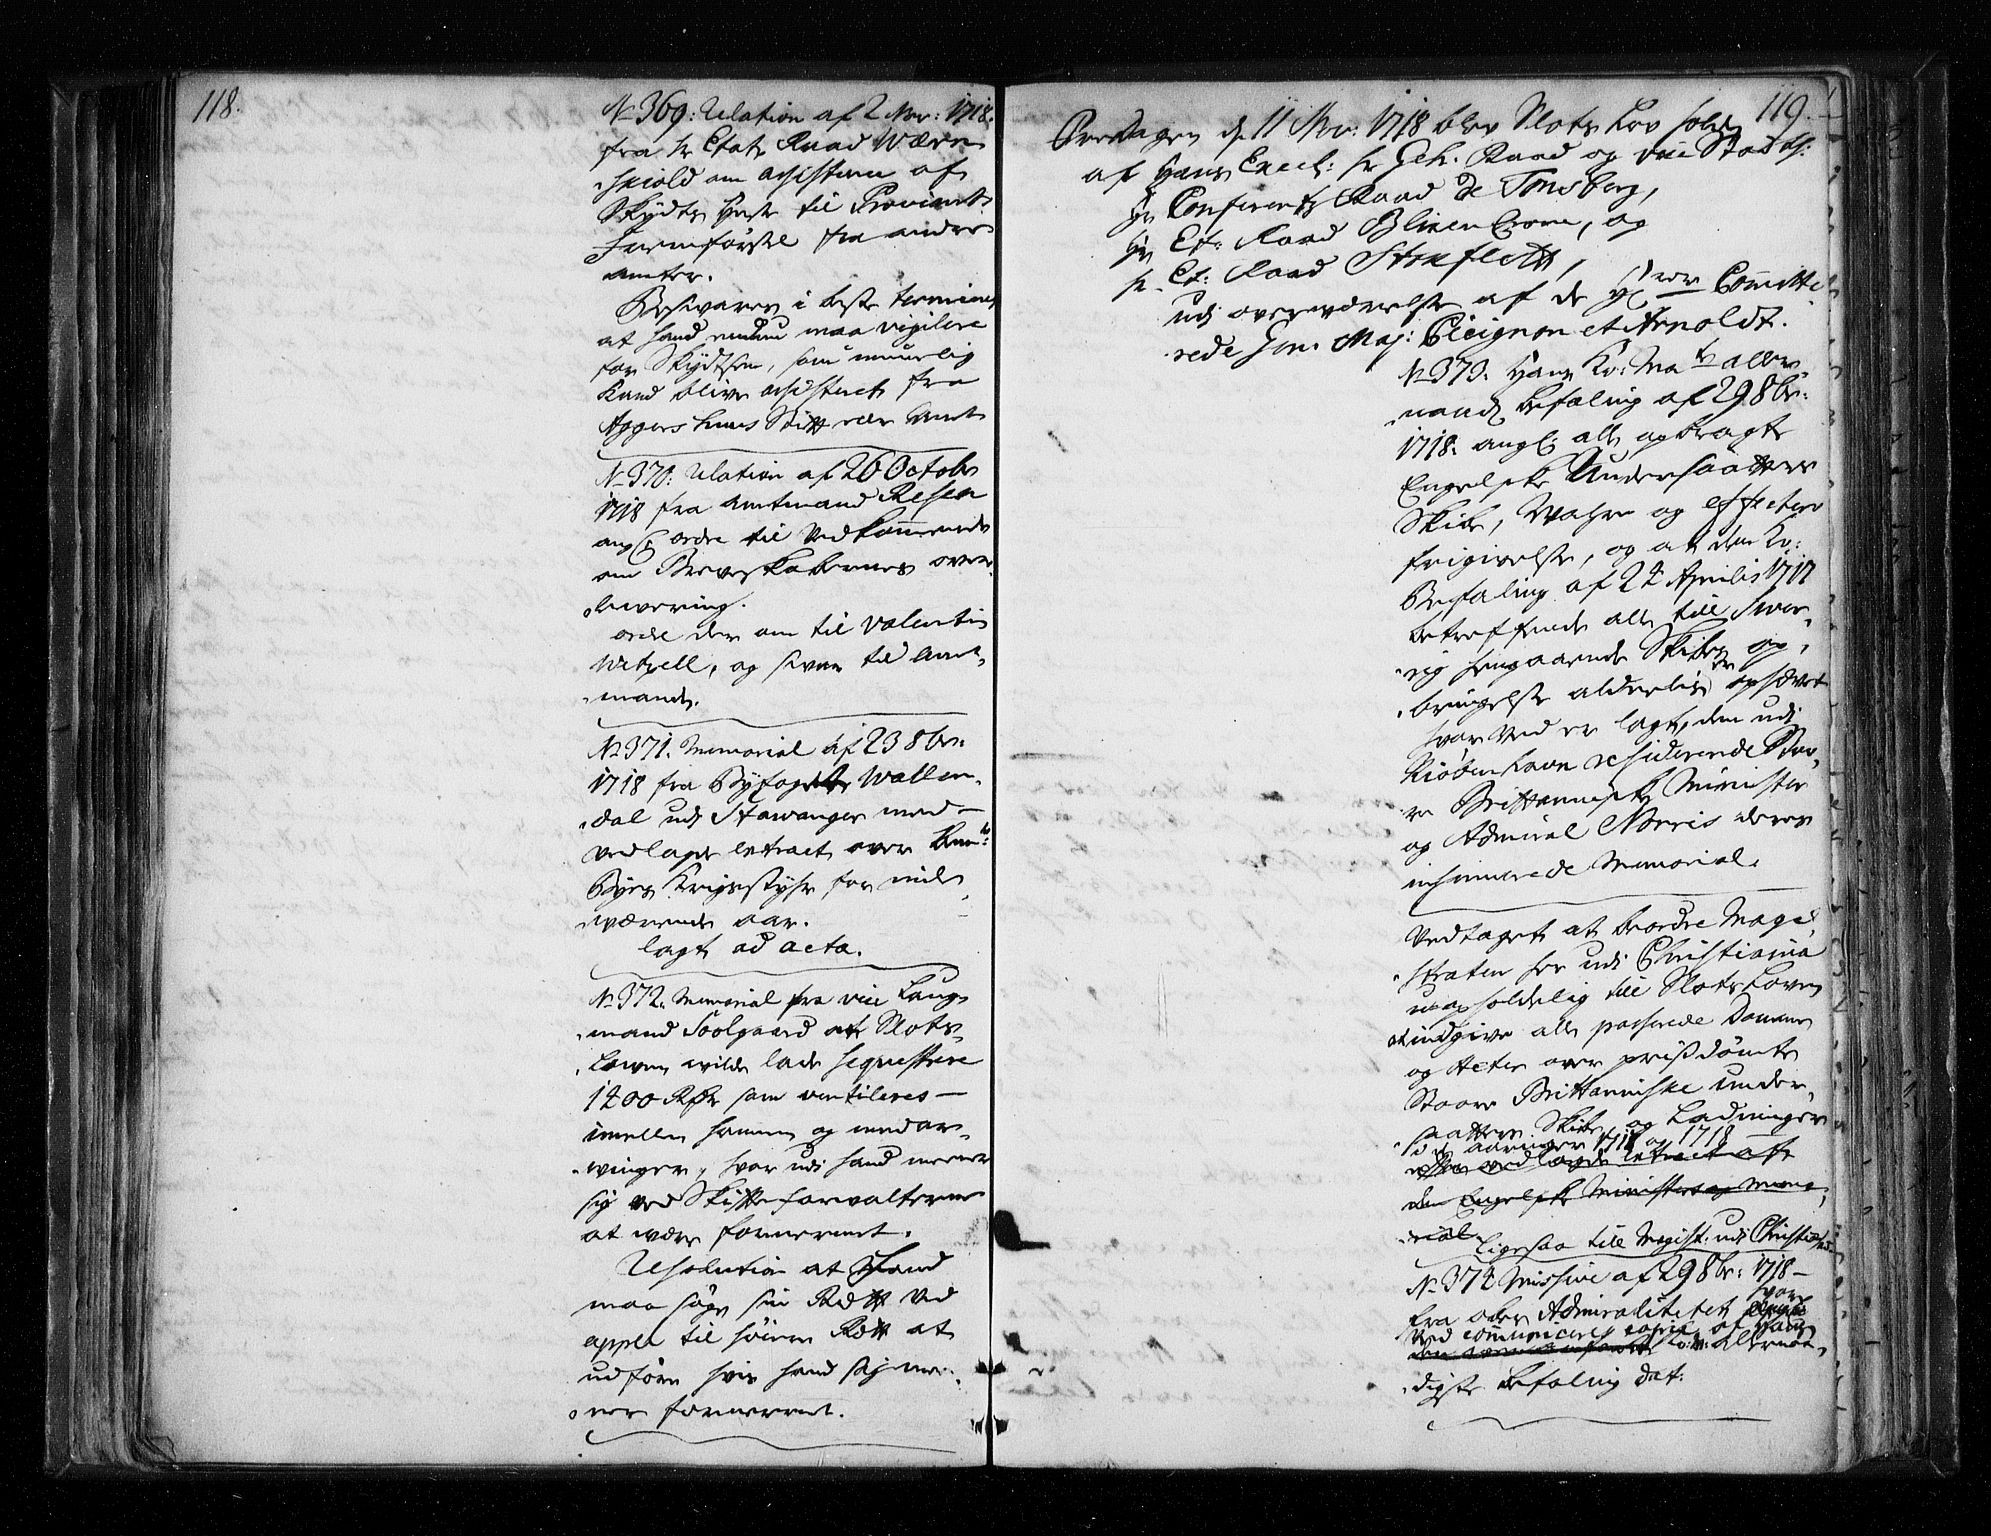 118.
No 369: Relation af 2 Nov: 1718.
fra hr Etats Raad Wærn
skiold om assistence af
Skydts heste til Proviants
fremførsel fra andre
amter.
Besvares i beste terminis
at hand endnu maa vigilere
for Skydtsen, som muelig
kand blive assisteret fra
Aggershuus Stift eller Amt
No 370: Relation af 26 Octobr
1718 fra amtmand Resen
ang: ordre til vedkommende
om Brevskabernes over-
levering.
ordre der om til Valentin
Wetzell, og svar til Amt-
manden.
No 371. Memorial af 23 8br:
1718 fra Byfoget Wallen-
dal udi Stawanger med
vedlagt extract over bem:te
Byes Krigsstyhr for inde-
værende aar.
lagt ad acta.
No 372. Memorial fra vice Laug-
mand Soelgaard at Slots-
Loven vilde lade sequestrere
1400 Rdr som ventileres
imellem hannem og medar-
vinger, hvor udi hand meener
sig ved Skifteforvalterne
at være fornermet.
Resolution at Hand
maa søge sin Rætt ved
appel til høiere Rætt at
udføre hvis hand sig mee-
ner fornermet.
119.
Fredagen d. 11 Nov: 1718 blev Slots Lov holden
af Hans Excell: hr Geh. Raad og vice Stadth:
hr Conferentz Raad de Tonsberg,
hr Et: Raad Blixencrone, og
hr. Et: Raad Stockfleth,
udi overværelse af de Hrrer Committe-
rede Gen. Maj: Cicignon et Arnoldt.
No 373. Hans Ko: Mats aller-
naad: befaling af 29 8br:
1718. ang: alle opbragte
Engelske Undersaatters
Skibe, Wahre og effecters
frigivelse, og at den Ko:
Befaling af 24 Aprilis 1717
betreffende alle till Sver-
rig hengaaende Skibes op-
bringelse alderlis er ophævet
hvor ved er lagt, den udi
Kiøbenhavn residerende Sto-
re Brittanniske Minister
og Admiral Norris deres
insinuerede Memorial.
Vedtaget at beordre Magi-
straten her udi Christiania
uopholdelig till Slots Loven
at indgive alle passerede Domme
og Acter over prisdømte
Stoore Brittanniske under-
saatters Skibe og Ladninger
i de aaringer 1717 og 1718
efter vedlagde extract aff
den Engelske Ministers Memo-
rial.
Ligesaa till Magist: udi Christiansand
No 374 Missive af 29 8br: 1718
fra ober Admiralitetet hvor
ved communiceres copie af Hans
Ko: M: allernaa-
digste befaling dat: